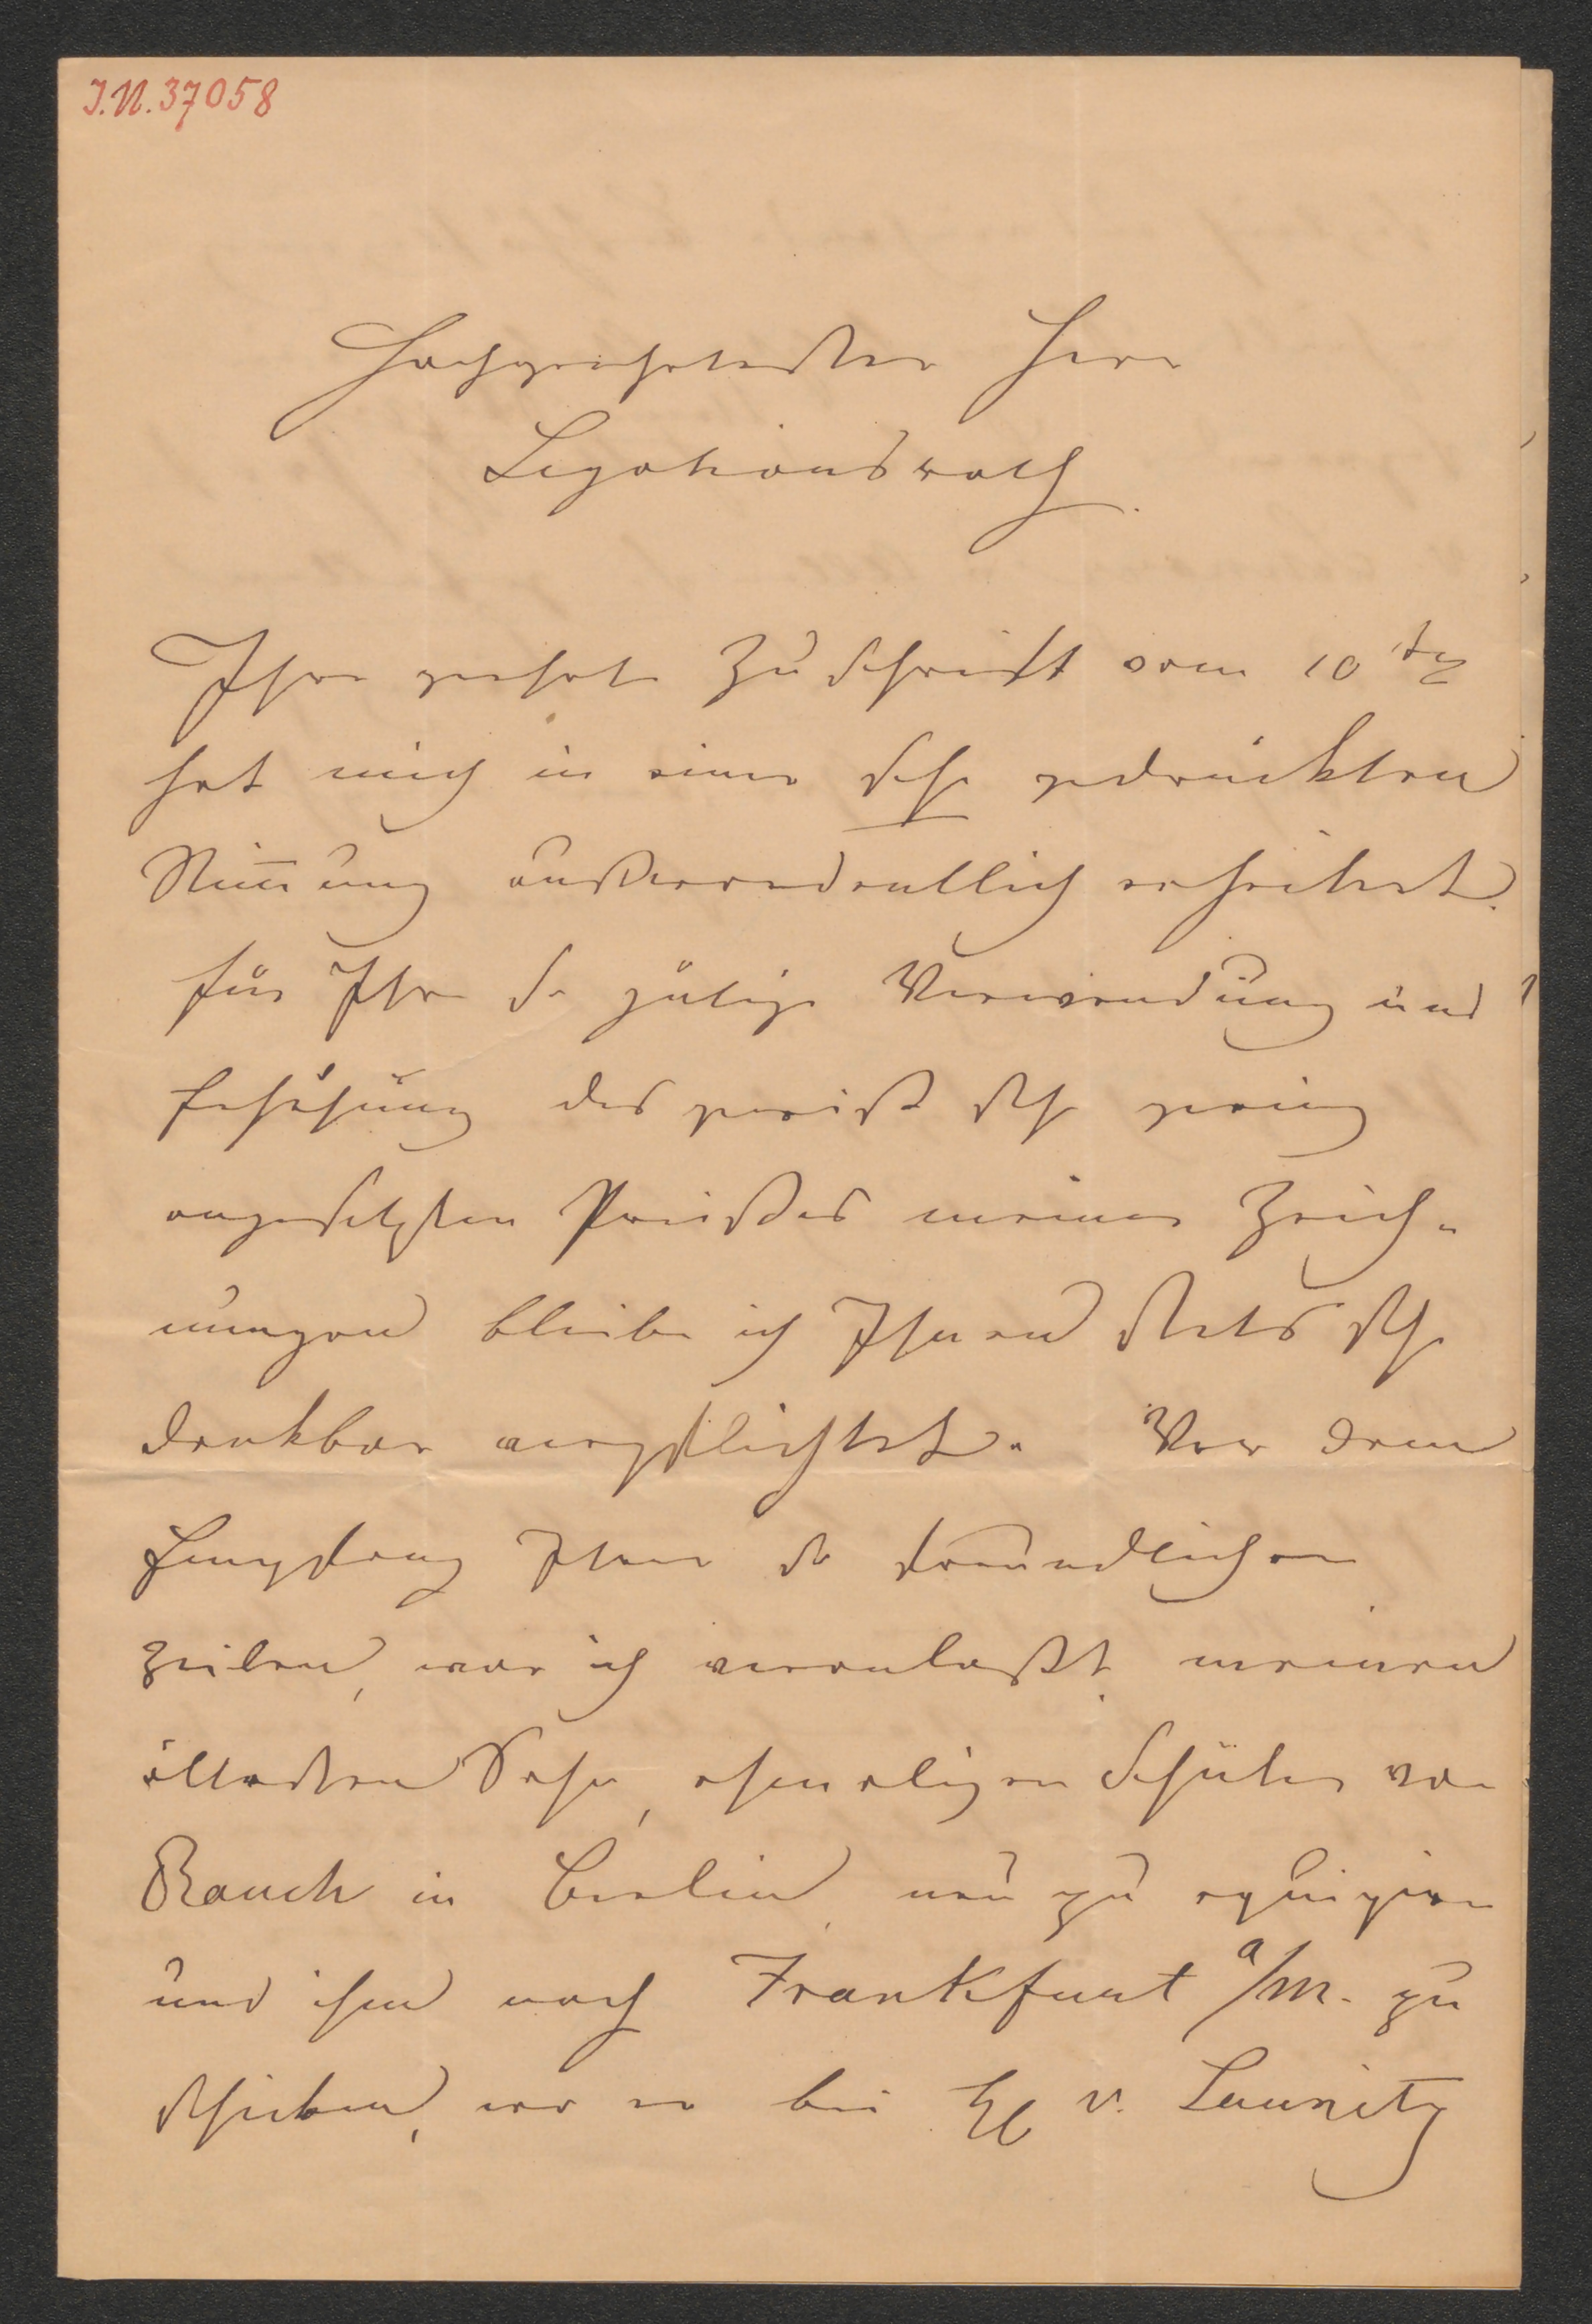 J.N. 37058
Hochgeehrtester Herr
Legationsrath.
Ihre geehrte Zuschrift vom 10ten
hat mich in einer sehr gedrückten
Stim̅ung außerordentlich erheitert.
für Ihre so gütige Verwendung und
Erhöhung des gewiß sehr gering
angesetzten Preißes meiner Zeich-
nungen bleibe ich Ihnen stets sehr
dankbar verpflichtet. Vor dem
Empfang Ihrer so freundlichen
Zeilen, war ich veranlaßt meinen
ältesten Sohn, ehemaligen Schüler von
Rauch in Berlin neu zu equipiren
und ihn nach Frankfurt a/M. zu
schicken, wo er bei H v. Launitz